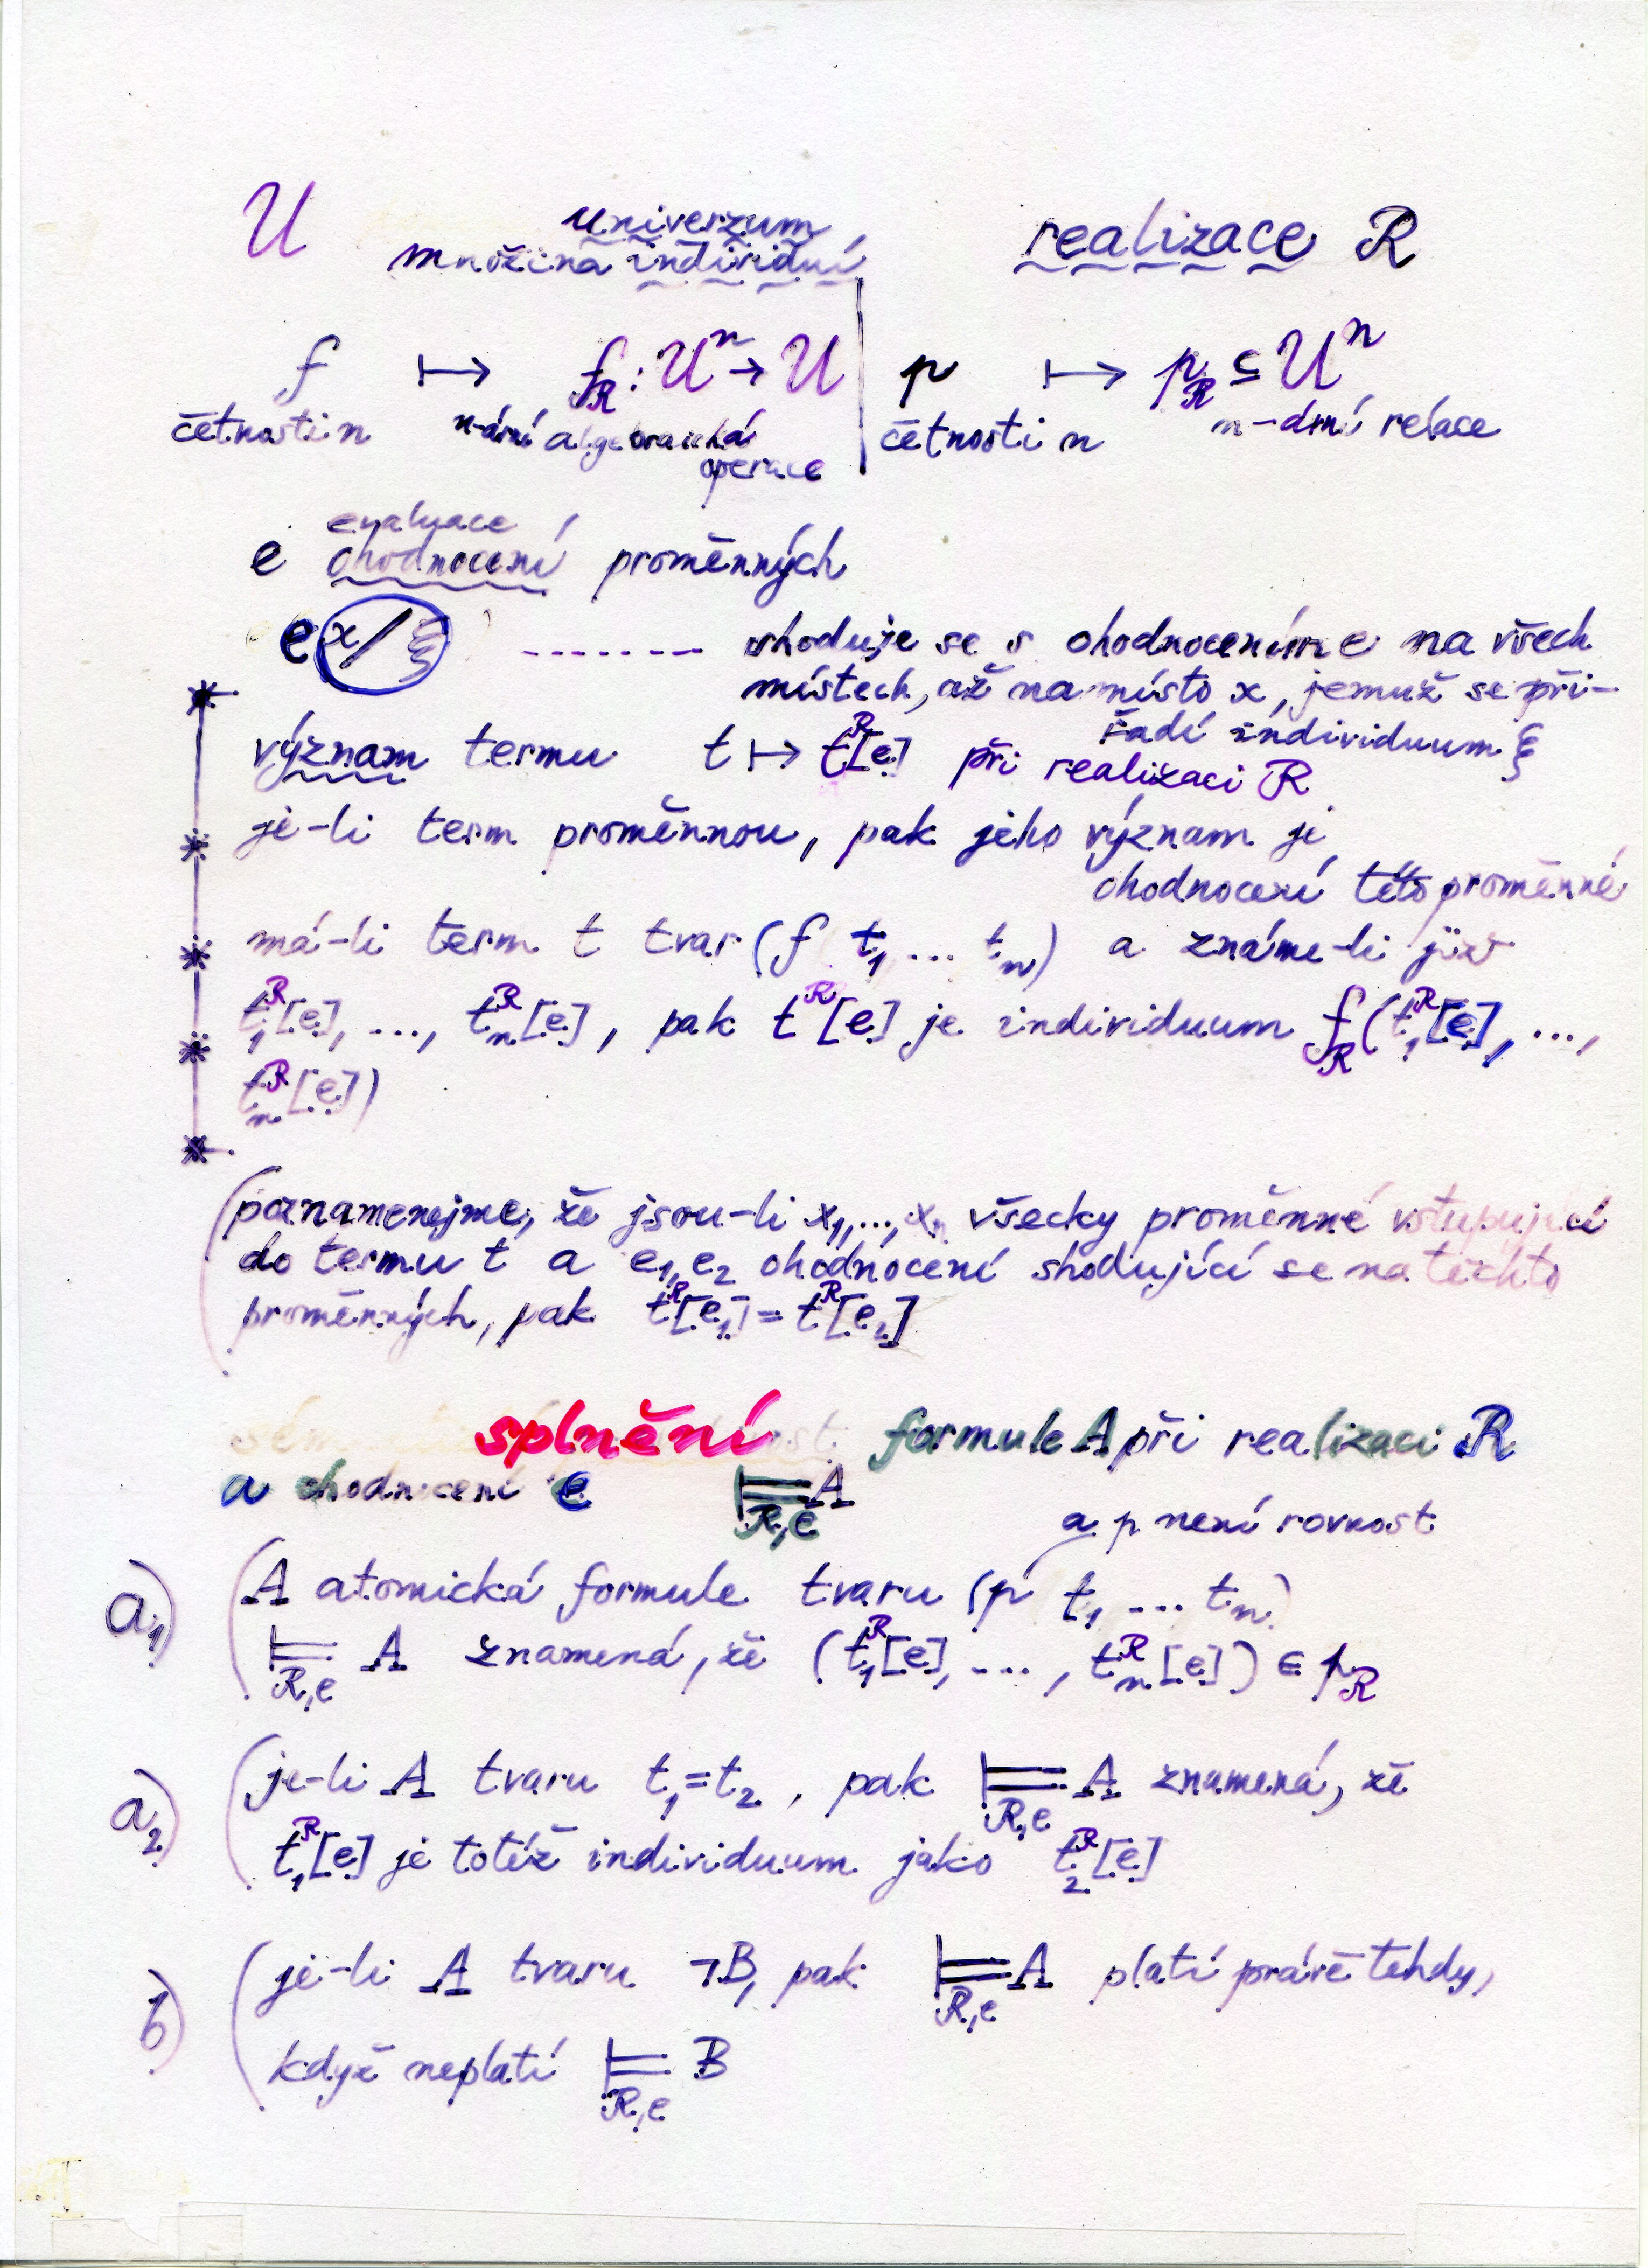 U univerzum, realizace R
množina individuí
f ↦ f_R : Uⁿ → U | p ↦ p_R ⊆ Uⁿ
četnosti n n-ární algebraická četnosti n n-ární relace
operace
evaluace,
e ohodnocení proměnných
e x/ξ ------- shoduje se s ohodnocením e na všech
místech, až na místo x, jemuž se při-
řadí individuum ξ
význam termu t ↦ t^R[e] při realizaci R
je-li term proměnnou, pak jeho význam je
ohodnocení této proměnné
má-li term t tvar (f t₁ ... tₙ) a známe-li již
t₁^R[e], ..., tₙ^R[e], pak t^R[e] je individuum f_R(t₁^R[e], ...,
tₙ^R[e])
(poznamenejme, že jsou-li x₁, ..., xₙ všecky proměnné vstupující
do termu t a e₁, e₂ ohodnocení shodující se na těchto
proměnných, pak t^R[e₁] = t^R[e₂]
splnění formule A při realizaci R
a ohodnocení e ⊨_{R,e} A
a p není rovnost
a₁) (A atomická formule tvaru (p t₁ ... tₙ)
⊨_{R,e} A znamená, že (t₁^R[e], ..., tₙ^R[e]) ∈ p_R
a₂) (je-li A tvaru t₁=t₂, pak ⊨_{R,e} A znamená, že
t₁^R[e] je totéž individuum jako t₂^R[e]
b) (je-li A tvaru ¬B, pak ⊨_{R,e} A platí právě tehdy,
když neplatí ⊨_{R,e} B